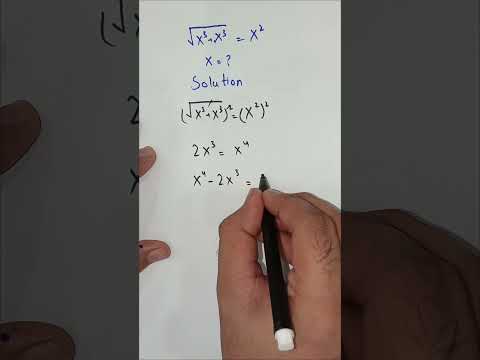 √x³+x³ = x²
x = ?
Solution
(√x³+x³)² = (x²)²
2x³ = x⁴
x⁴ - 2x³ =